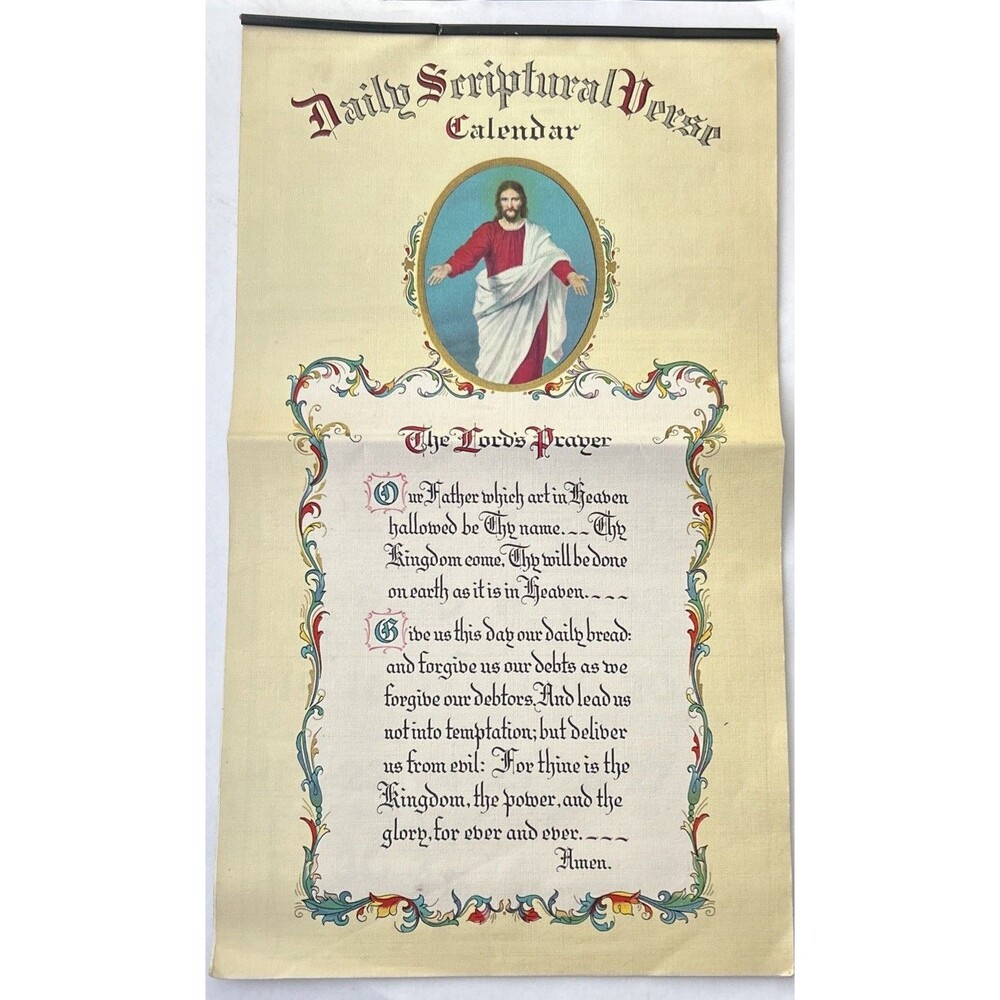 Daily Scriptural Verse
Calendar
The Lord's Prayer
Our Father which art in Heaven
hallowed be Thy name.___Thy
Kingdom come, Thy will be done
on earth as it is in Heaven.____
Give us this day our daily bread:
and forgive us our debts as we
forgive our debtors, And lead us
not into temptation; but deliver
us from evil: For thine is the
Kingdom, the power, and the
glory, for ever and ever.____
Amen.